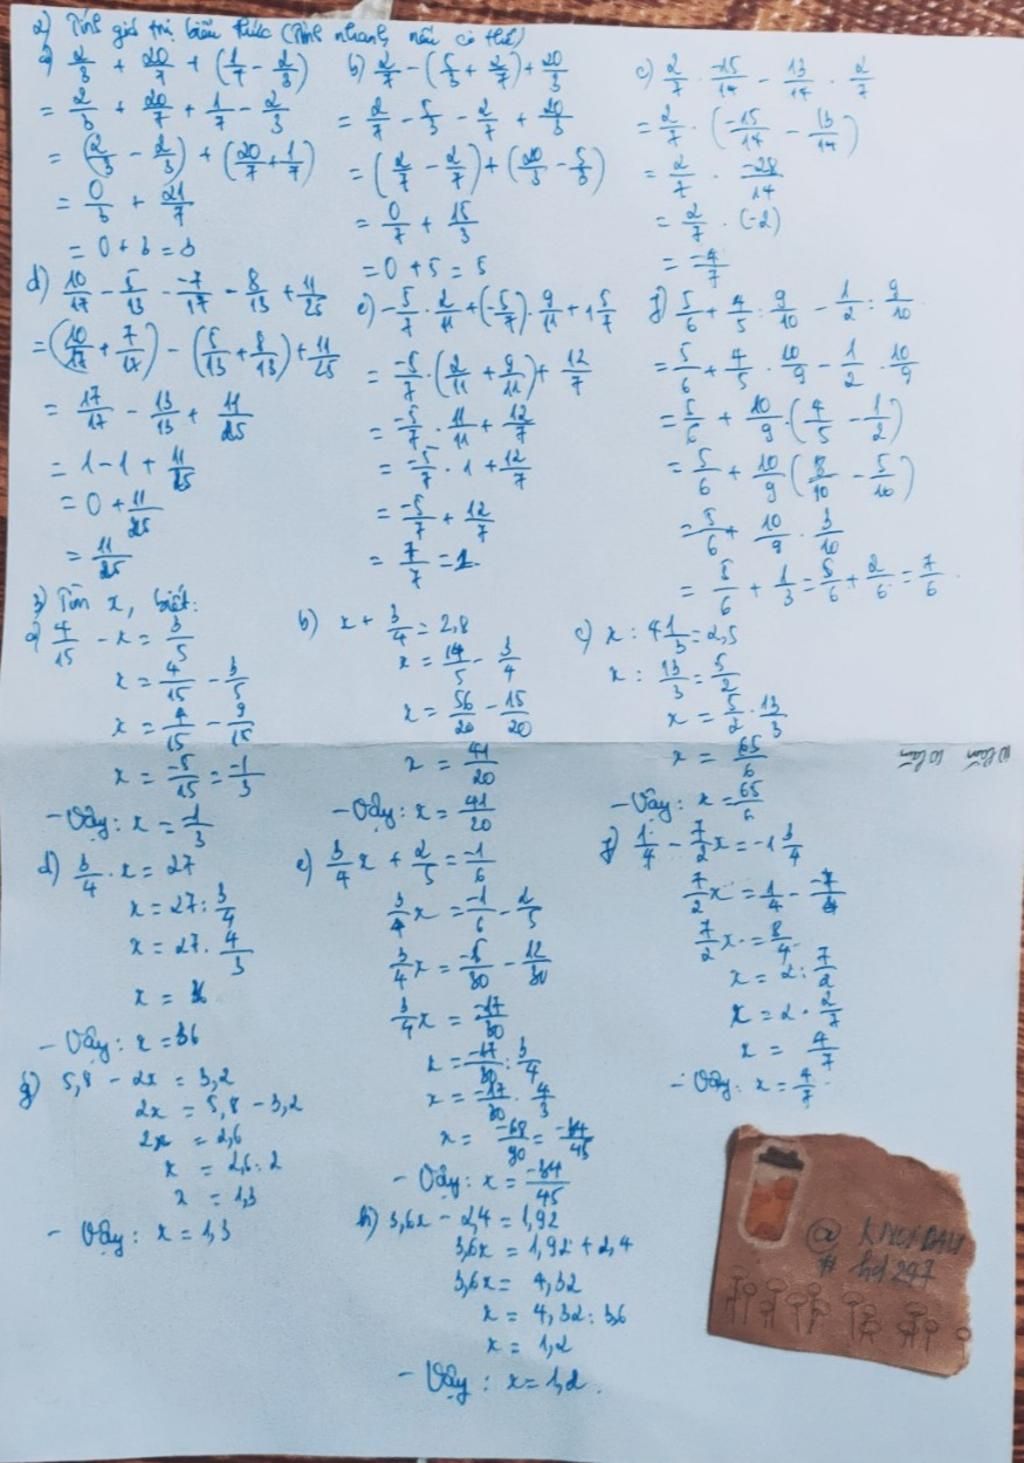 2) Tính giá trị biểu thức (Tính nhanh nếu có thể)
a) 2/3 + 20/7 + (1/7 - 2/3)
= 2/3 + 20/7 + 1/7 - 2/3
= (2/3 - 2/3) + (20/7 + 1/7)
= 0/3 + 21/7
= 0 + 3 = 3
b) 2/7 - (5/3 + 2/7) + 20/3
= 2/7 - 5/3 - 2/7 + 20/3
= (2/7 - 2/7) + (20/3 - 5/3)
= 0/7 + 15/3
= 0 + 5 = 5
c) 2/7 . -15/14 - 13/14 . 2/7
= 2/7 . (-15/14 - 13/14)
= 2/7 . -28/14
= 2/7 . (-2)
= -4/7
d) 10/17 - 5/13 - -7/17 - 8/13 + 11/25
= (10/17 + 7/17) - (5/13 + 8/13) + 11/25
= 17/17 - 13/13 + 11/25
= 1 - 1 + 11/25
= 0 + 11/25
= 11/25
e) -5/7 . 2/11 + (-5/7) . 9/11 + 1 5/7
= -5/7 . (2/11 + 9/11) + 12/7
= -5/7 . 11/11 + 12/7
= -5/7 . 1 + 12/7
= -5/7 + 12/7
= 7/7 = 1.
f) 5/6 + 4/5 : 9/10 - 1/2 : 9/10
= 5/6 + 4/5 . 10/9 - 1/2 . 10/9
= 5/6 + 10/9 . (4/5 - 1/2)
= 5/6 + 10/9 (8/10 - 5/10)
= 5/6 + 10/9 . 3/10
= 5/6 + 1/3 = 5/6 + 2/6 = 7/6.
3) Tìm x, biết:
a) 4/15 - x = 3/5
x = 4/15 - 3/5
x = 4/15 - 9/15
x = -5/15 = -1/3
- Vậy: x = -1/3
b) x + 3/4 = 2,8
x = 14/5 - 3/4
x = 56/20 - 15/20
x = 41/20
- Vậy: x = 41/20
c) x : 4 1/3 = 2,5
x : 13/3 = 5/2
x = 5/2 . 13/3
x = 65/6
- Vậy: x = 65/6
10 lần 10 lần
d) 3/4 . x = 27
x = 27 : 3/4
x = 27 . 4/3
x = 36
- Vậy: x = 36
e) 3/4x + 2/5 = -1/6
3/4x = -1/6 - 2/5
3/4x = -5/30 - 12/30
3/4x = -17/30
x = -17/30 : 3/4
x = -17/30 . 4/3
x = -68/90 = -34/45
- Vậy: x = -34/45
f) 1/4 - 7/2x = -1 3/4
7/2x = 1/4 - -7/4
7/2x = 8/4
x = 2 : 7/2
x = 2 . 2/7
x = 4/7
- Vậy: x = 4/7.
g) 5,8 - 2x = 3,2
2x = 5,8 - 3,2
2x = 2,6
x = 2,6 : 2
x = 1,3
- Vậy: x = 1,3
h) 3,6x - 2,4 = 1,92
3,6x = 1,92 + 2,4
3,6x = 4,32
x = 4,32 : 3,6
x = 1,2
- Vậy: x = 1,2.
# hd247